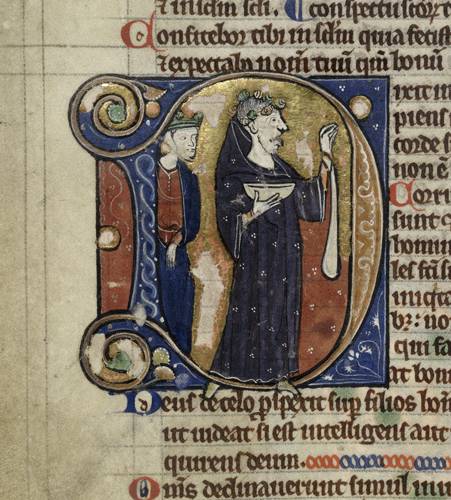 ⁊ in sclm scli. conspectu scor t
Confitebor tibi in sclm quia fecist
⁊ expectabo nom tuū qm̄ bonū
ixit in
piens
corde s
non ē
Corru
sunt ⁊
homin
les fcī s
iniqta
bz: no
qui fa
at bon
Deus de celo pspexit sup filios hom
ut uideat si est intelligens aut
quirens deum.
Oms declinauerunt simul inu